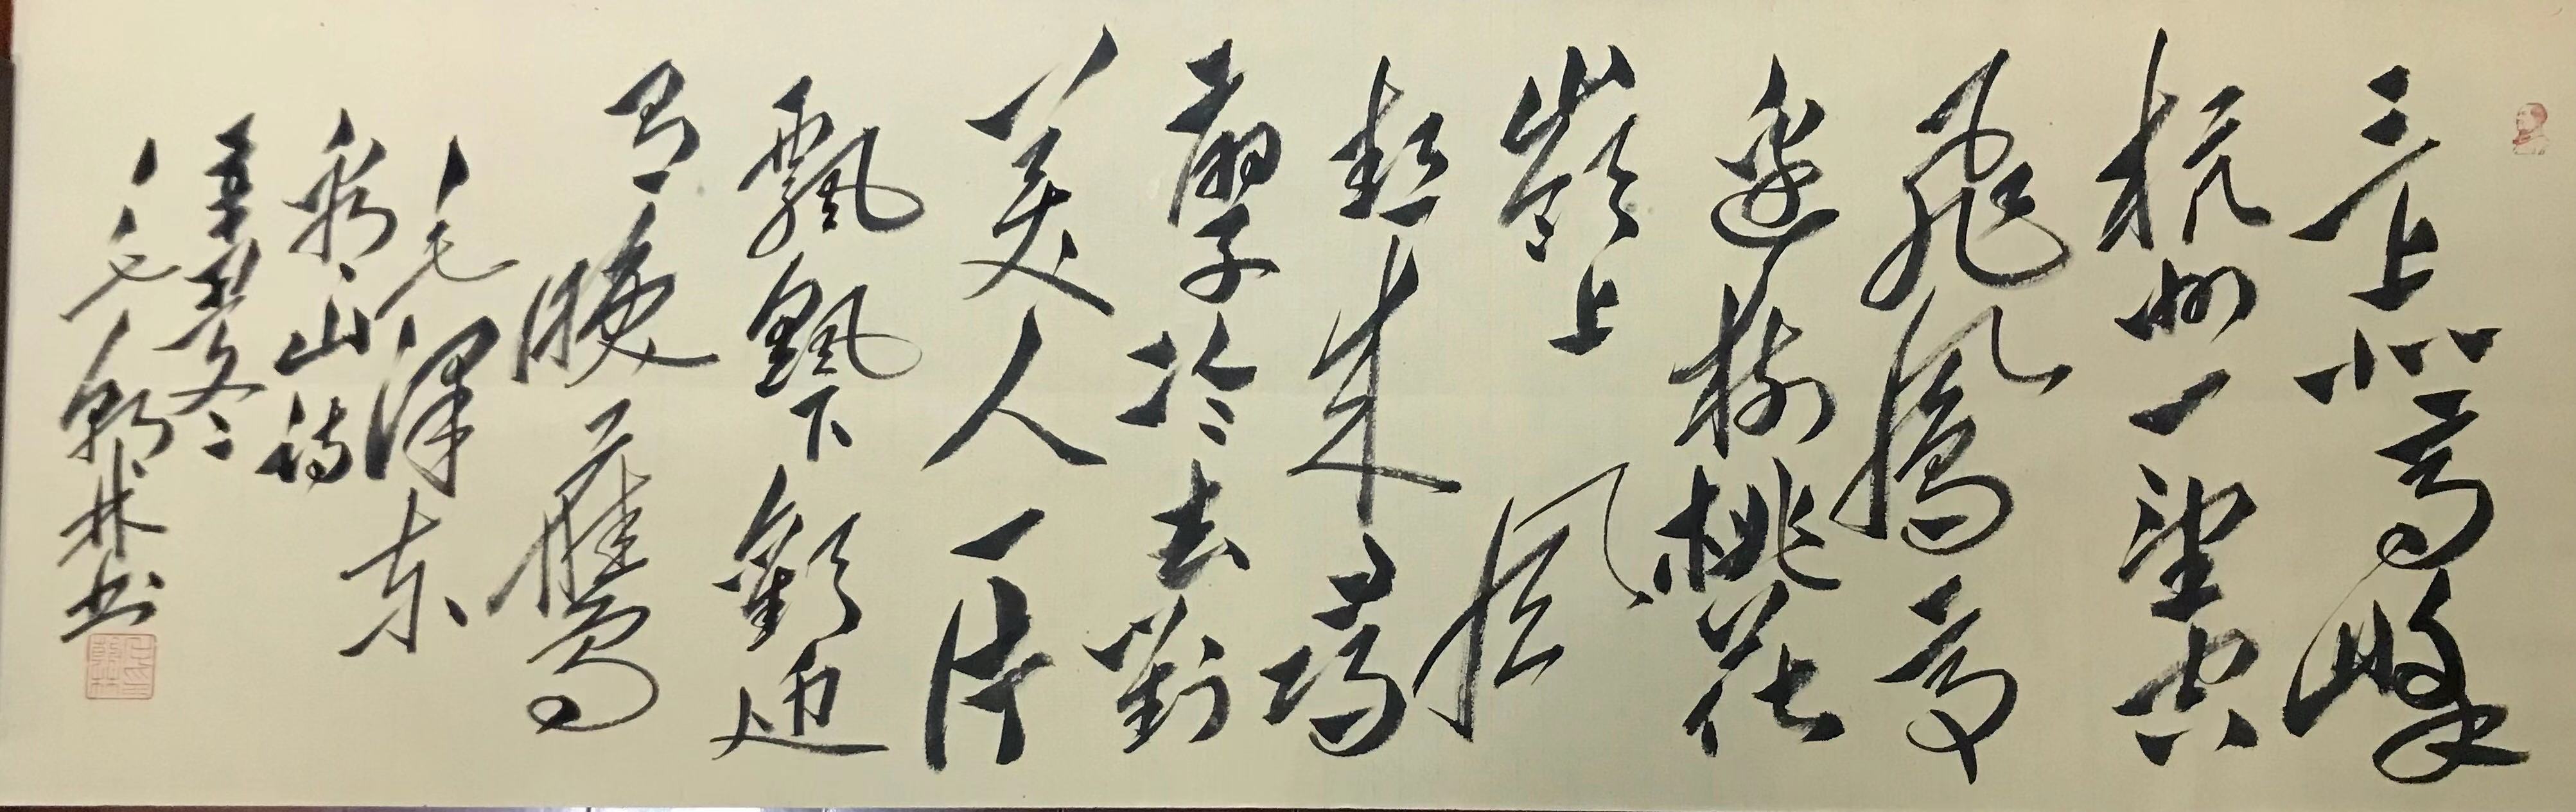 三上北高峰
杭州一望空
飛鳳亭
邊樹桃花
嶺上風
熱來尋
扇子冷去對
美人一片
飄飄下歡迎
有晚鷹
毛澤東
看山詩
辛丑冬
毛林书